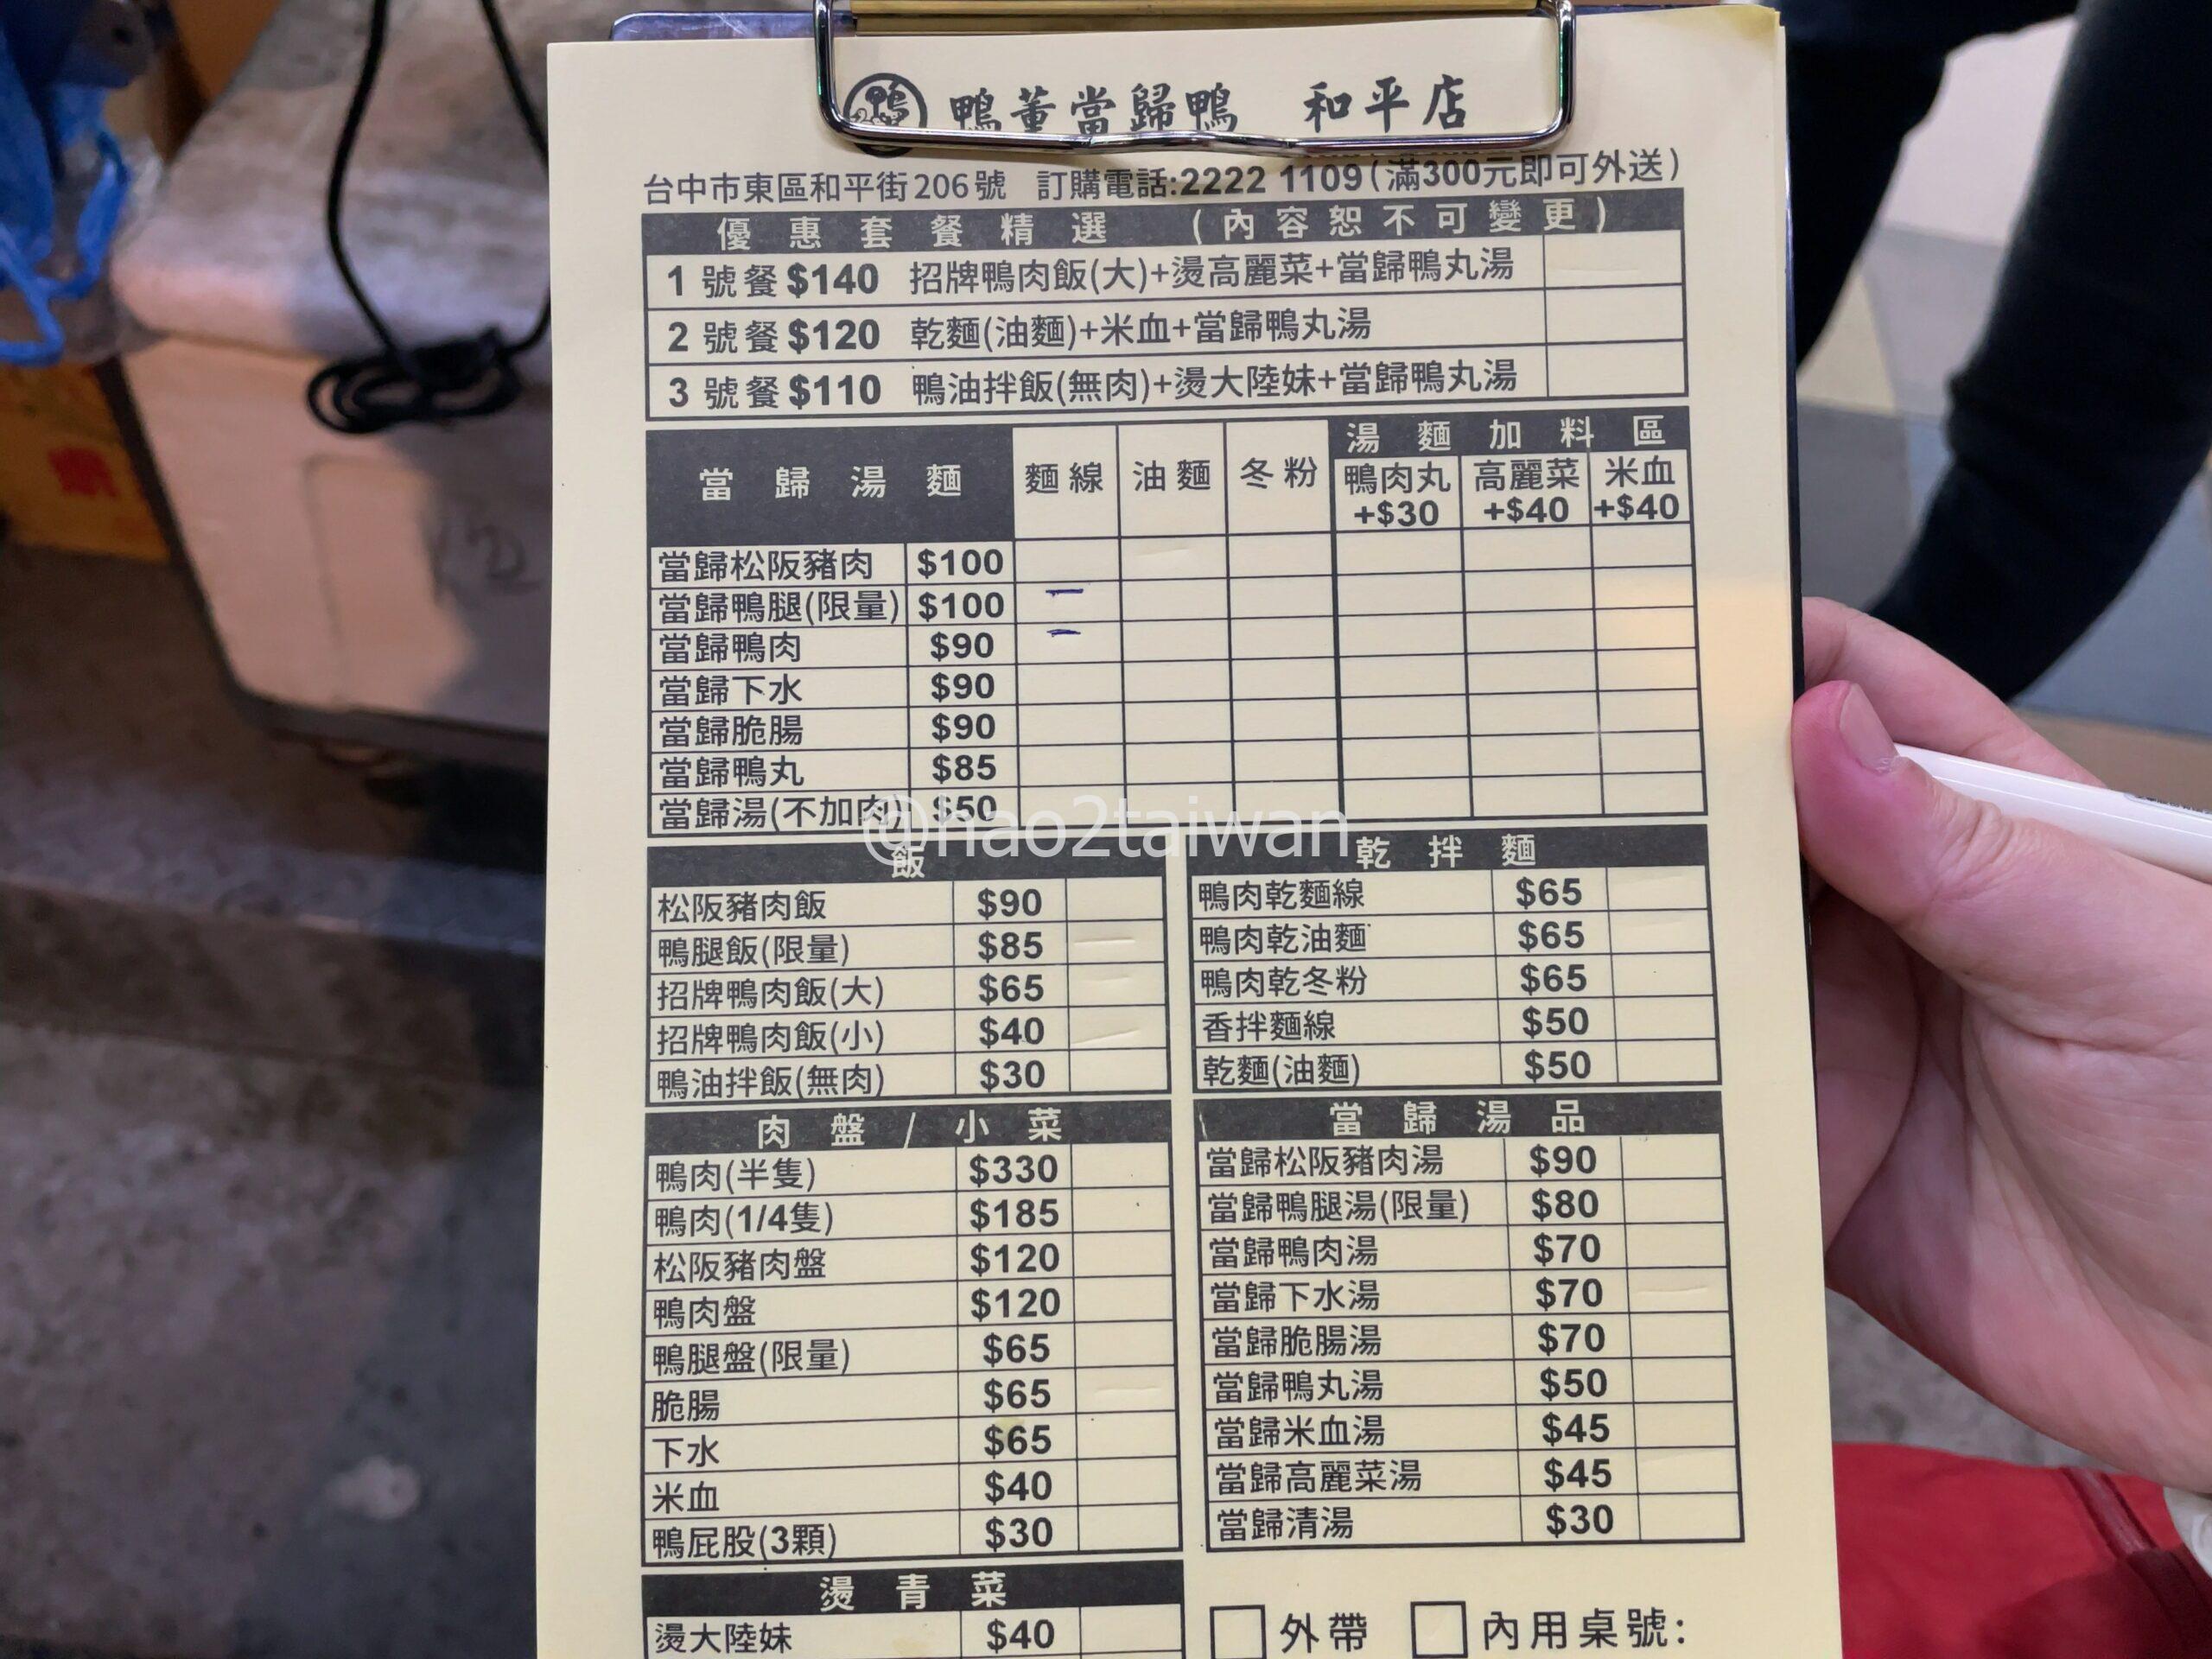 鴨董當歸鴨 和平店
台中市東區和平街206號 訂購電話:2222 1109(滿300元即可外送)
優惠套餐精選 (內容恕不可變更)
1 號餐 $140 招牌鴨肉飯(大)+燙高麗菜+當歸鴨丸湯
2 號餐 $120 乾麵(油麵)+米血+當歸鴨丸湯
3 號餐 $110 鴨油拌飯(無肉)+燙大陸妹+當歸鴨丸湯
當歸湯麵 麵線 油麵 冬粉 湯麵加料區
鴨肉丸 高麗菜 米血
+$30 +$40 +$40
當歸松阪豬肉 $100
當歸鴨腿(限量) $100
當歸鴨肉 $90
當歸下水 $90
當歸脆腸 $90
當歸鴨丸 $85
當歸湯(不加肉) $50
@hao2taiwan
飯
松阪豬肉飯 $90
鴨腿飯(限量) $85
招牌鴨肉飯(大) $65
招牌鴨肉飯(小) $40
鴨油拌飯(無肉) $30
乾拌麵
鴨肉乾麵線 $65
鴨肉乾油麵 $65
鴨肉乾冬粉 $65
香拌麵線 $50
乾麵(油麵) $50
肉盤/小菜
鴨肉(半隻) $330
鴨肉(1/4隻) $185
松阪豬肉盤 $120
鴨肉盤 $120
鴨腿盤(限量) $65
脆腸 $65
下水 $65
米血 $40
鴨屁股(3顆) $30
當歸湯品
當歸松阪豬肉湯 $90
當歸鴨腿湯(限量) $80
當歸鴨肉湯 $70
當歸下水湯 $70
當歸脆腸湯 $70
當歸鴨丸湯 $50
當歸米血湯 $45
當歸高麗菜湯 $45
當歸清湯 $30
燙青菜
燙大陸妹 $40
外帶 內用桌號: